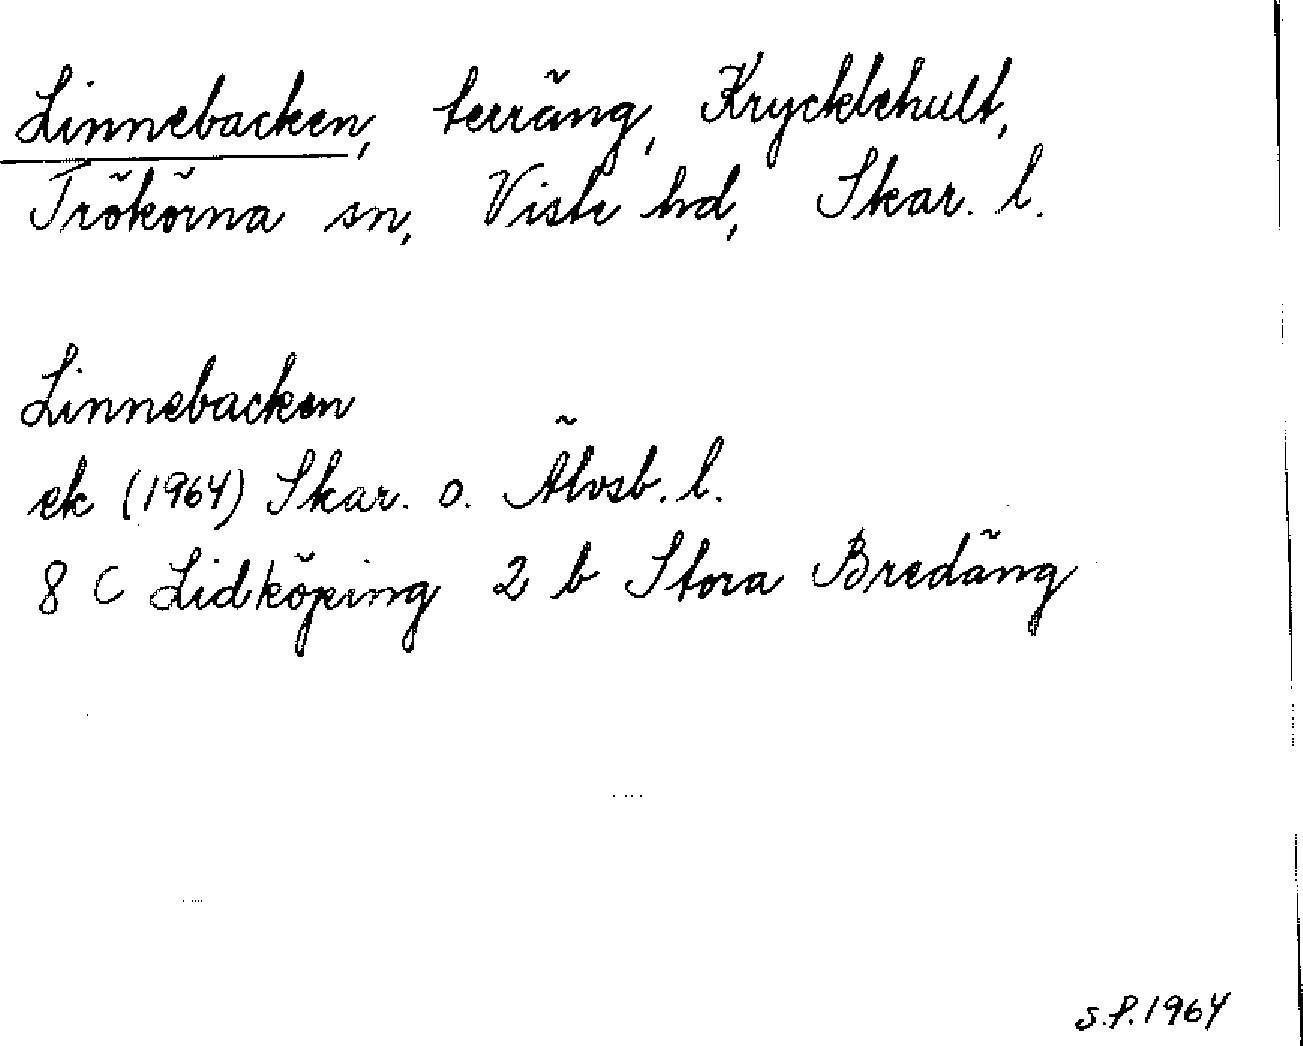 Linnebacken, terräng, Krycklehult,
Trökörna sn, Viste hd, Skar. l.
Linnebacken
ek (1964) Skar. o. Älvsb. l.
8 C Lidköping 2 b Stora Bredäng
S.P. 1964